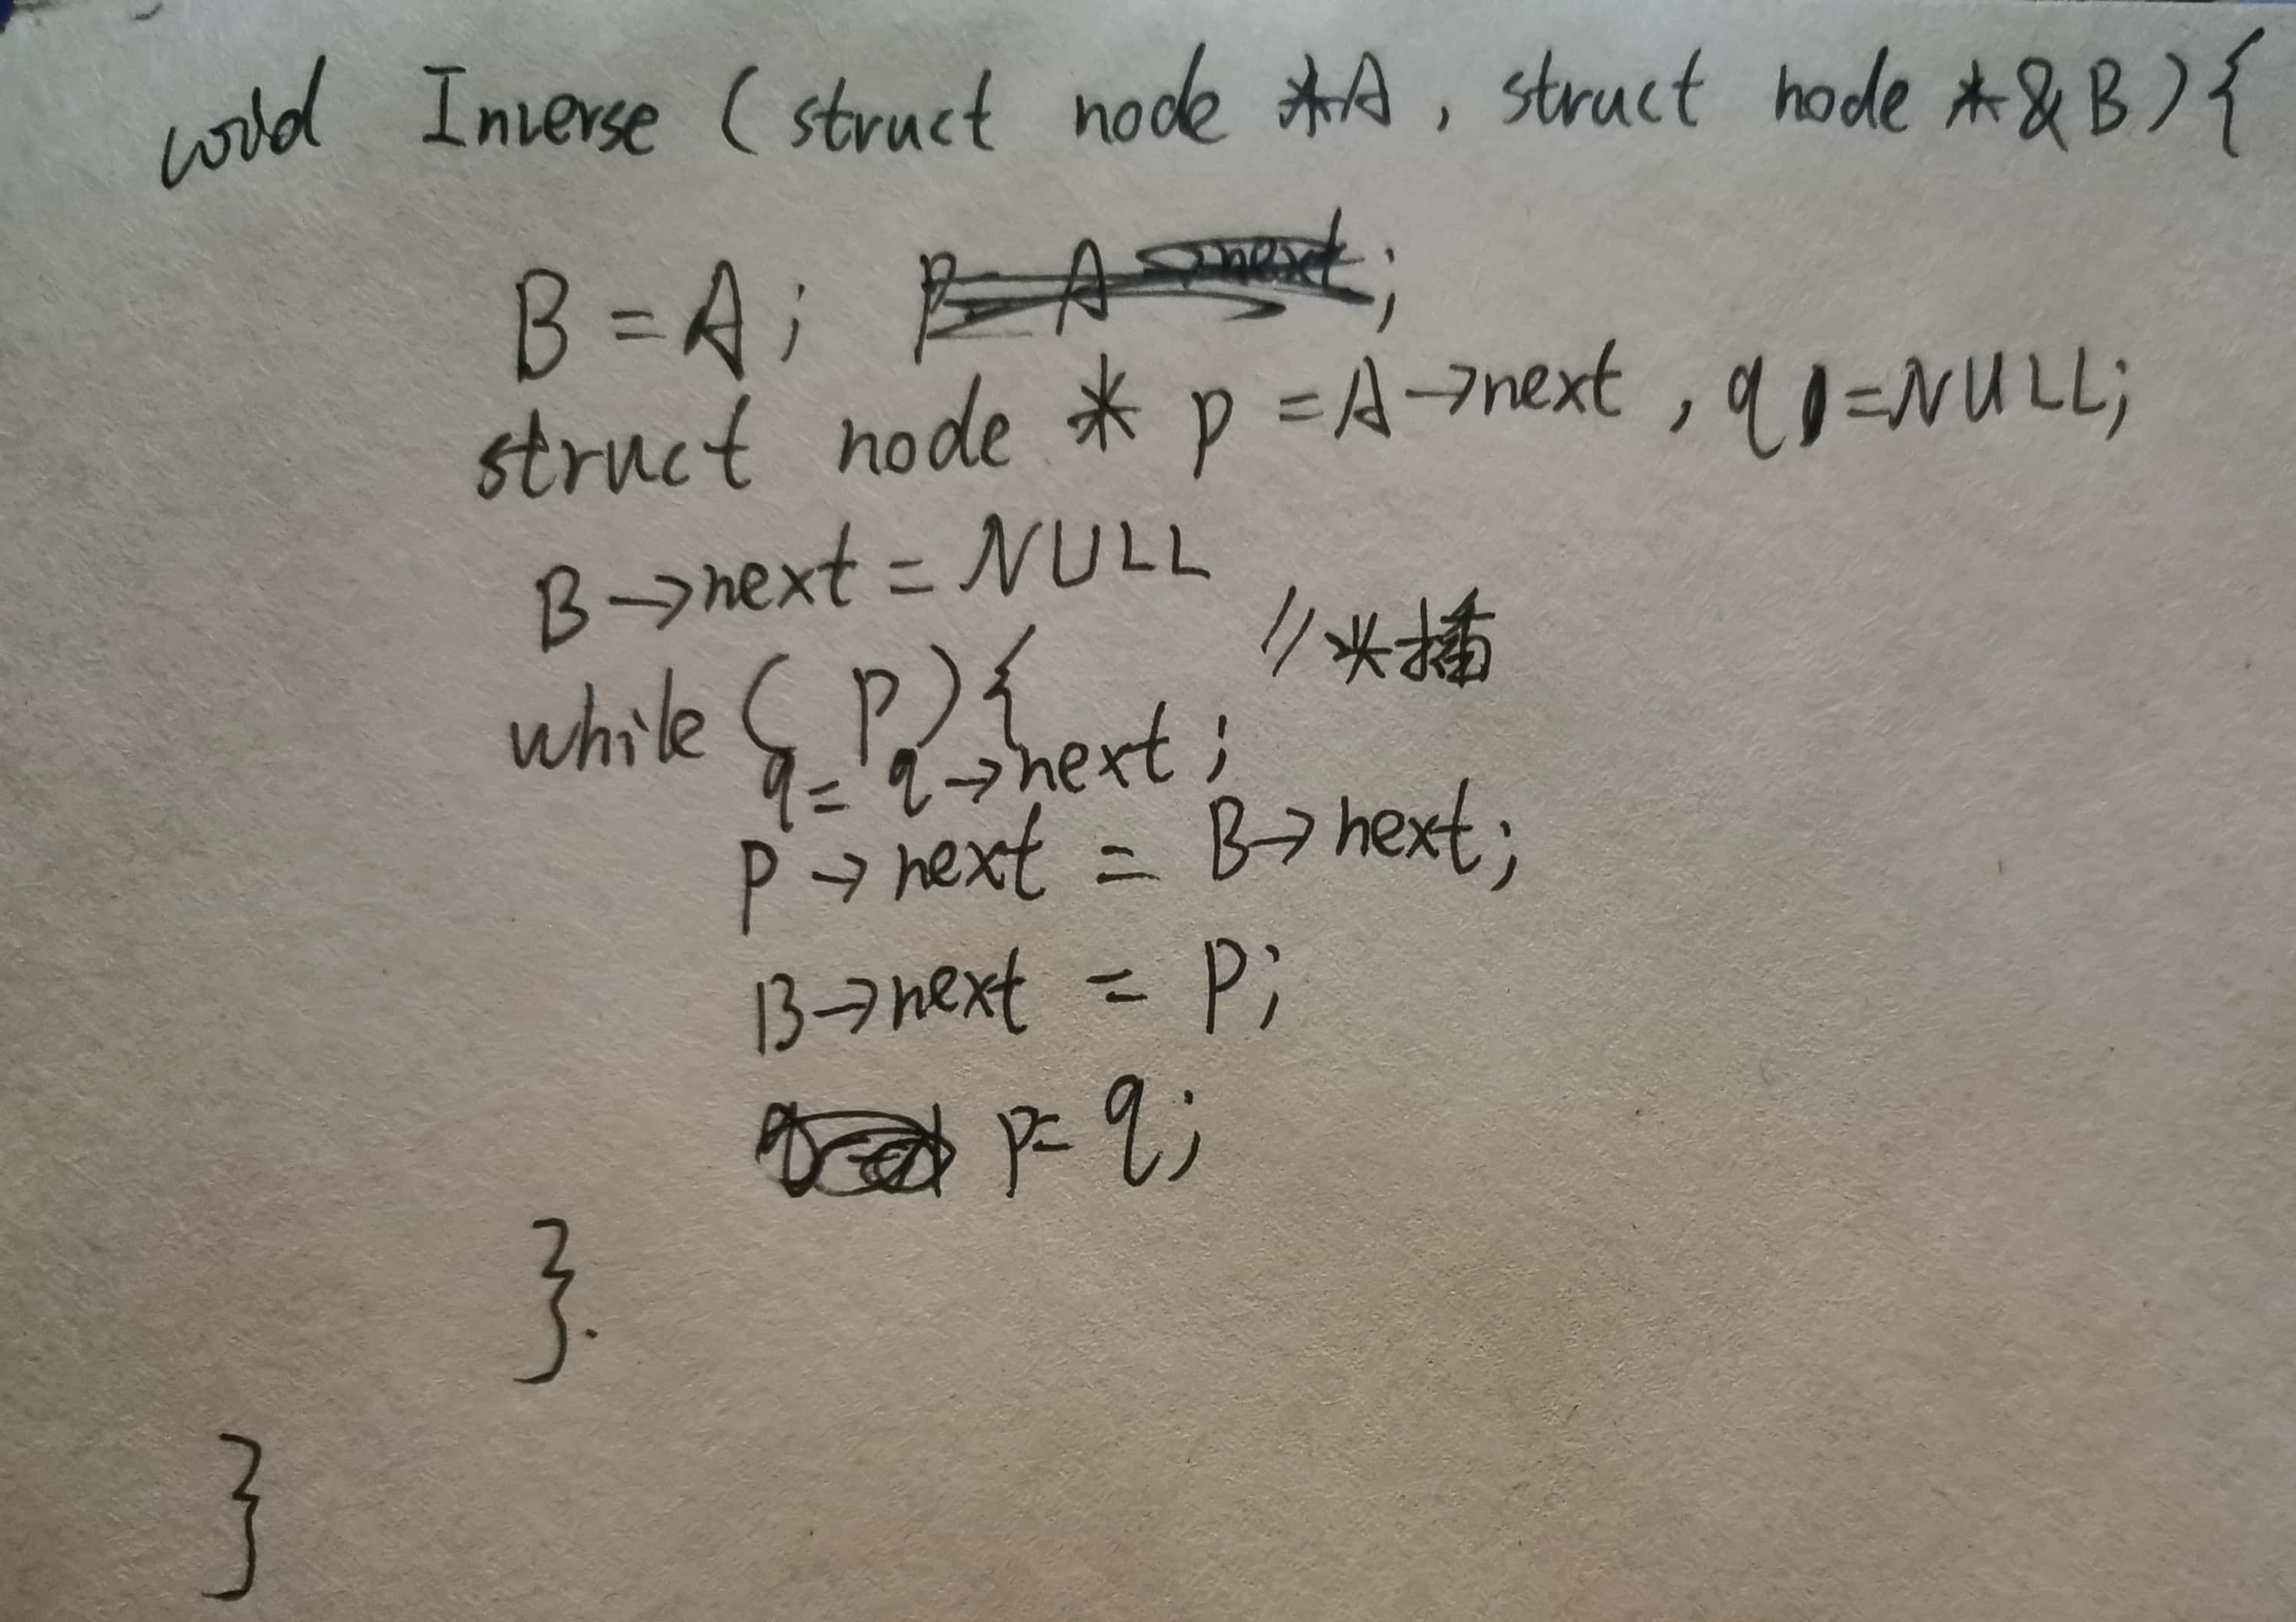 void Inverse (struct node *A, struct node *&B){
B = A;
struct node * p = A->next, q = NULL;
B->next = NULL
//头插
while (p){
q = q->next;
p->next = B->next;
B->next = p;
p = q;
}.
}